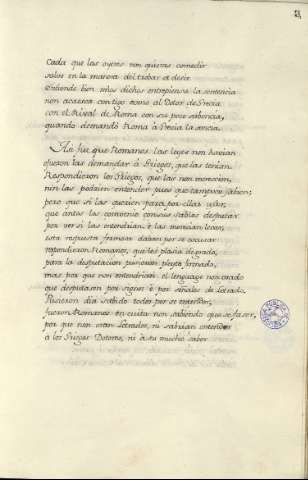 Cada que las oyeres non quieras comedir
salvo en la manera del trobar et desir
Entiende bien mios dichos entrepiensa la sentencia
non acaezca contigo como al Dotor de Grecia
con el Ribal de Roma con sus poca sabencia,
quando demandó Roma á Grecia la ciencia.
Asi fue que Romanos las leyes non havian
fueron las demandar á Griegos, que las tenian.
Respondieron los Griegos, que las non merecien,
nin las podrien entender pues que tampoco sabien;
pero que si las querien para por ellas usar,
que antes las convenio con sus sabios desputar
por ver si las entendrian, é las merecian levar,
esta respuesta fermosa daban por se escusar
respondieron Romanos, que les plasia de grado,
para la disputacion pusieron pleyto firmado,
mas por que non entendrian el lenguage non usado
que disputasen por signos é por señales de letrado.
Pusieron dia sabido todos por se contender,
fueron Romanos en cuita non sabiendo que se faser,
por que non eran letrados, ni sabrian entender
á los Griegos Dotores, ni á su mucho saber